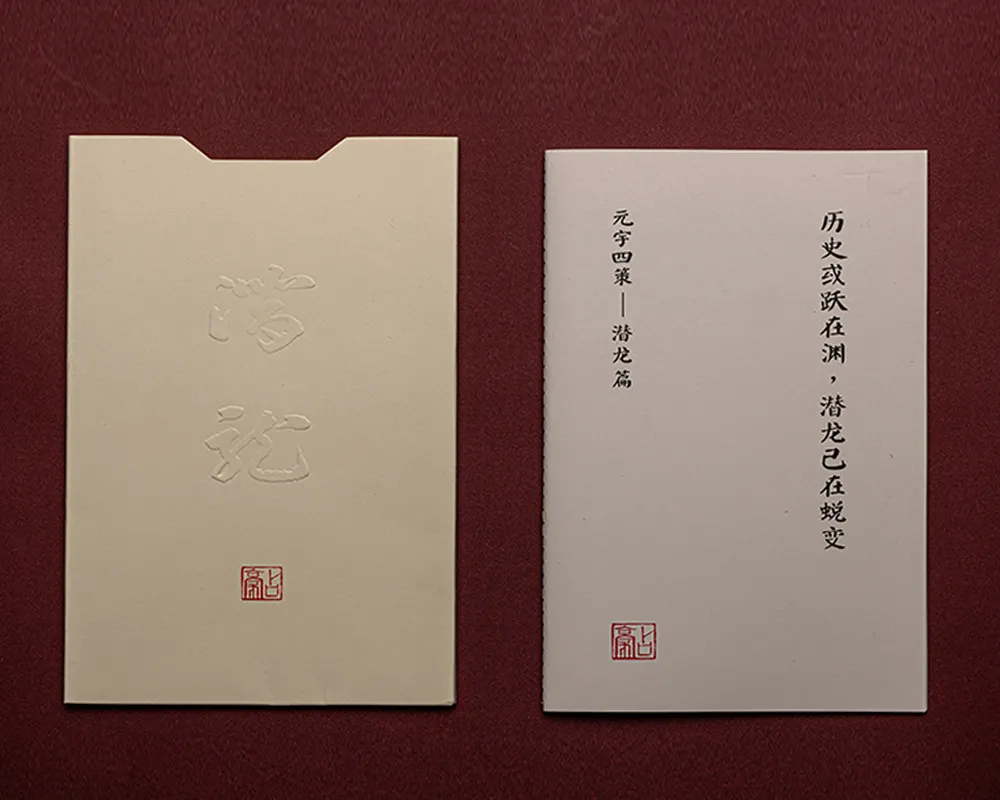 潜龙
占豪
历史或跃在渊，潜龙已在蜕变
元宇四策—潜龙篇
占豪